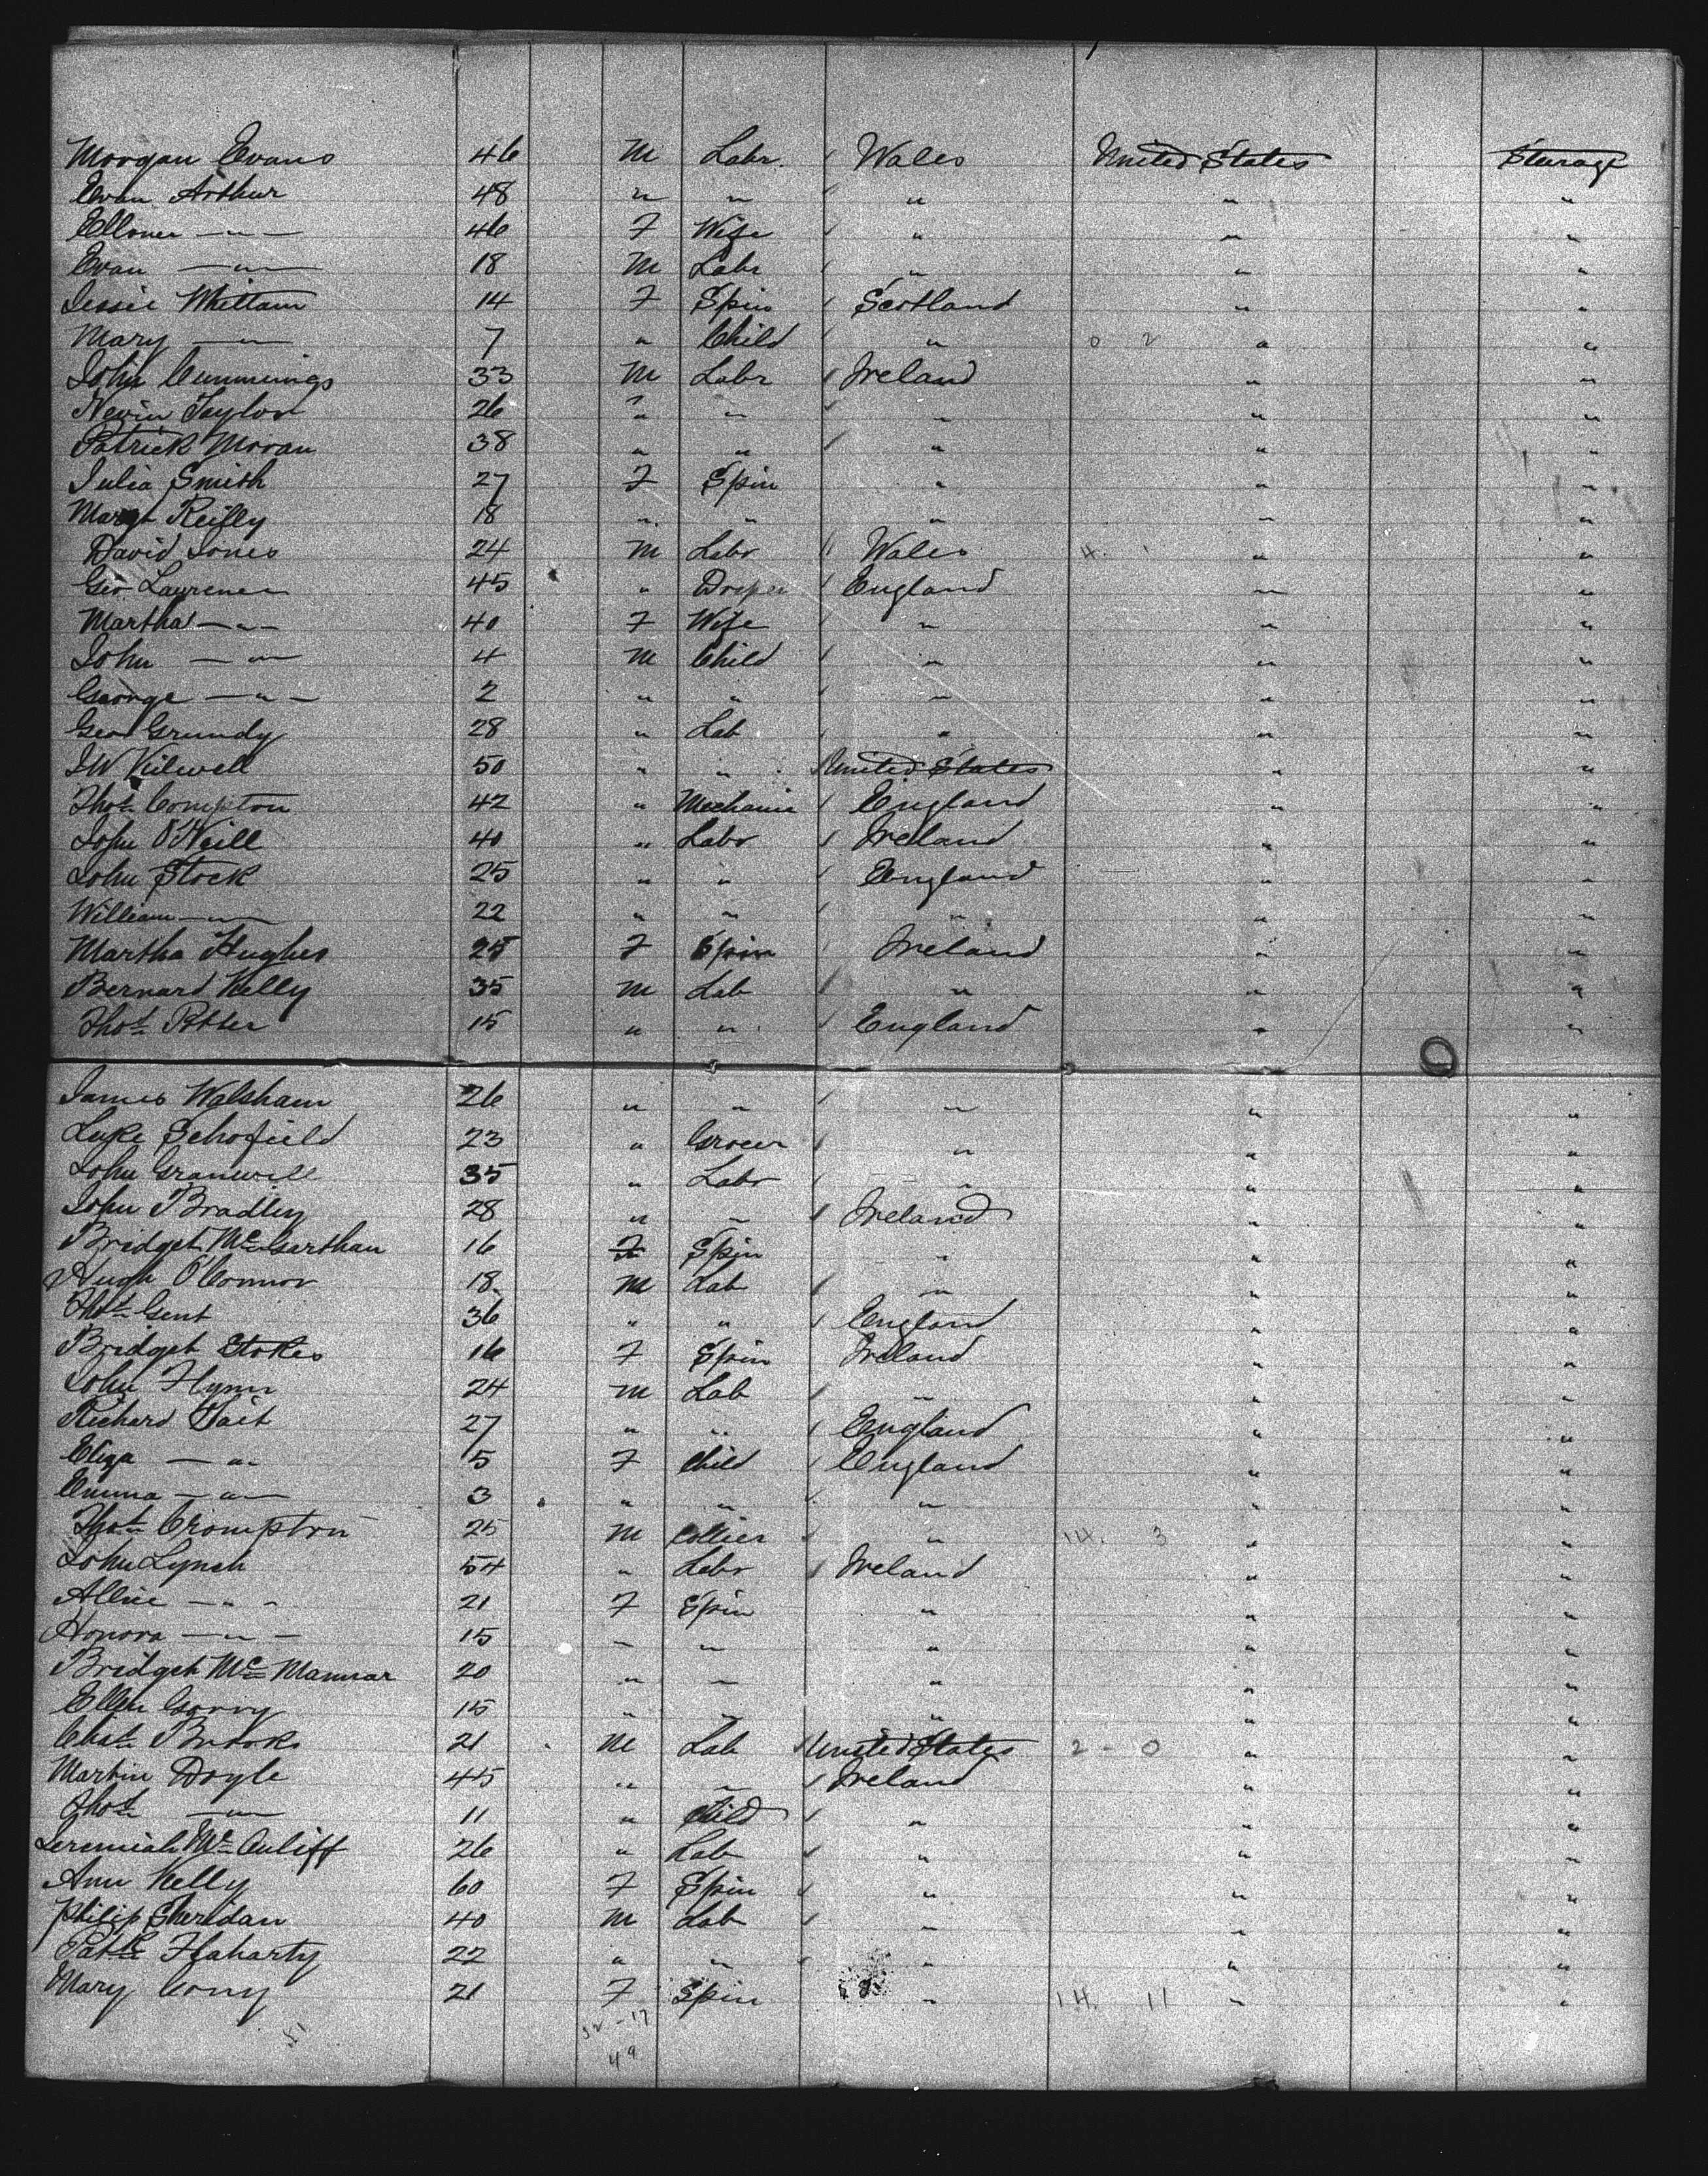 Morgan Evans 46 M Labr. Wales United States Steerage
Evan Arthur 48 " " " " "
Elloner — " — 46 F Wife " " "
Evan — " — 18 M Labr " " "
Jessie Whittam 14 F Spin Scotland " "
Mary — " — 7 " Child " 0 2 " "
John Cummings 33 M Labr Ireland " "
Nevin Taylor 26 " " " " "
Patrick Moran 38 " " " " "
Julia Smith 27 F Spin " " "
Margt Reilly 18 " " " " "
David Jones 24 M Labr Wales 4. 1 " "
Geo Laurence 45 " Draper England " "
Martha — " — 40 F Wife " " "
John — " — 4 M Child " " "
George — " — 2 " " " " "
Geo Grundy 28 " Lab " " "
J W Kilwell 50 " " United States " "
Thos Compton 42 " Mechanic England " "
John O'Neill 40 " Labr Ireland " "
John Stock 25 " " England " "
William — " — 22 " " " " "
Martha Hughes 25 F Spin Ireland " "
Bernard Kelly 35 M Lab " " "
Thos Potter 15 " " England " "
James Walsham 26 " " " " "
Luke Schofield 23 " Grocer " " "
John Granwill 35 " Labr " " "
John Bradley 28 " " Ireland " "
Bridget McGarthan 16 F Spin " " "
Hugh O'Connor 18 M Lab " " "
Thos Gent 36 " " England " "
Bridget Stokes 16 F Spin Ireland " "
John Flynn 24 M Lab " " "
Richard Tait 27 " " England " "
Eliza — " — 5 F Child England " "
Emma — " — 3 " " " " "
Thos Crompton 25 M Collier " 14. 3 " "
John Lynch 54 " Labr Ireland " "
Allice — " — 21 F Spin " " "
Honora — " — 15 " " " " "
Bridget McMannar 20 " " " " "
Ellen Gorry 15 " " " " "
Chas Brooks 21 M Lab United States 2 - 0 " "
Martin Doyle 45 " " Ireland " "
Thos — " — 11 " Child " " "
Jeremiah McAuliff 26 " Lab " " "
Ann Kelly 60 F Spin " " "
Philip Sheridan 40 M Lab " " "
Patk Flaharty 22 " " " " "
Mary Cony 21 F Spin " 14. 11 " "
51 32 - 17
49